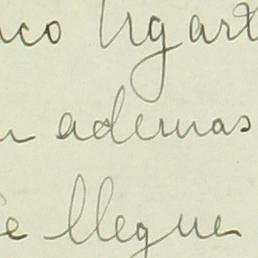 nco Ugart
n ademas
e llegue